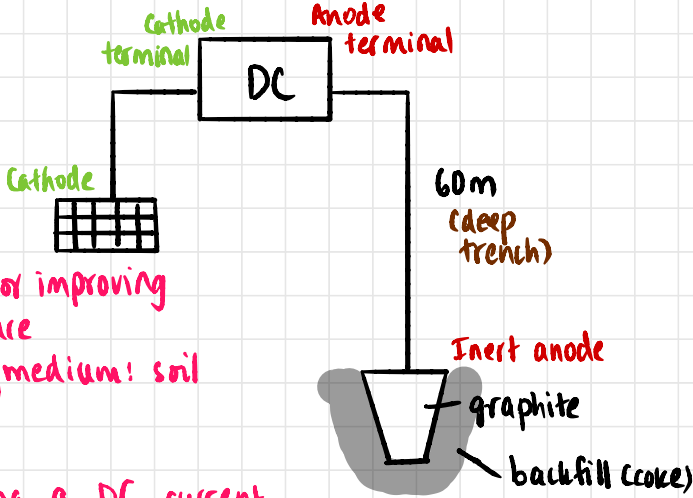 Cathode
terminal
Anode
terminal
DC
Cathode
60m
(deep
trench)
or improving
medium: soil
Inert anode
graphite
backfill (coke)
a DC current